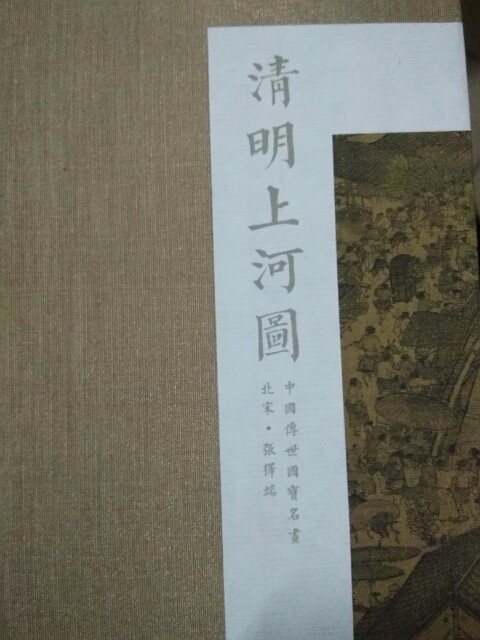 清明上河圖
中國傳世國寶名畫
北宋·張擇端